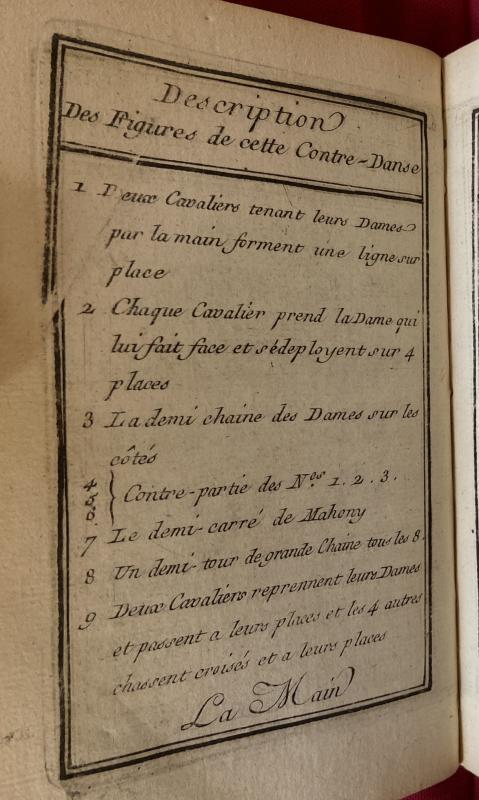 Description
Des Figures de cette Contre-Danse
1 Deux Cavaliers tenant leurs Dames
par la main forment une ligne sur
place
2 Chaque Cavalier prend la Dame qui
lui fait face et sédeployent sur 4
places
3 La demi chaine des Dames sur les
côtés
4.5.6. } Contre-partie des Nos. 1. 2. 3.
7 Le demi-carré de Mahony
8 Un demi-tour de grande Chaine tous les 8.
9 Deux Cavaliers reprennent leurs Dames
et passent a leurs places et les 4 autres
chassent croisés et a leurs places
La Main